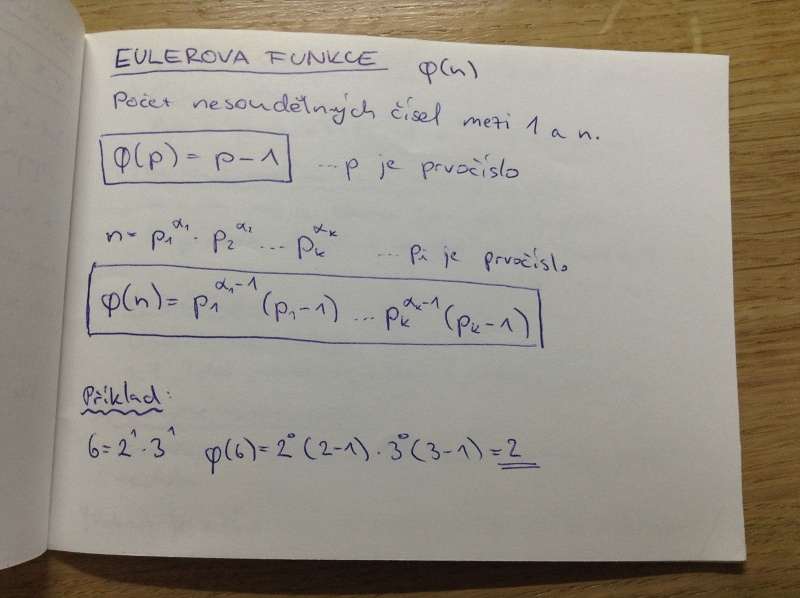 EULEROVA FUNKCE φ(n)
Počet nesoudělných čísel mezi 1 a n.
φ(p) = p-1 ...p je prvočíslo
n= p₁^α₁ · p₂^α₂ ... pₖ^αₖ ... pi je prvočíslo
φ(n) = p₁^(α₁-1) (p₁-1) ... pₖ^(αₖ-1) (pₖ-1)
Příklad:
6=2¹·3¹ φ(6)=2⁰(2-1)·3⁰(3-1)=2